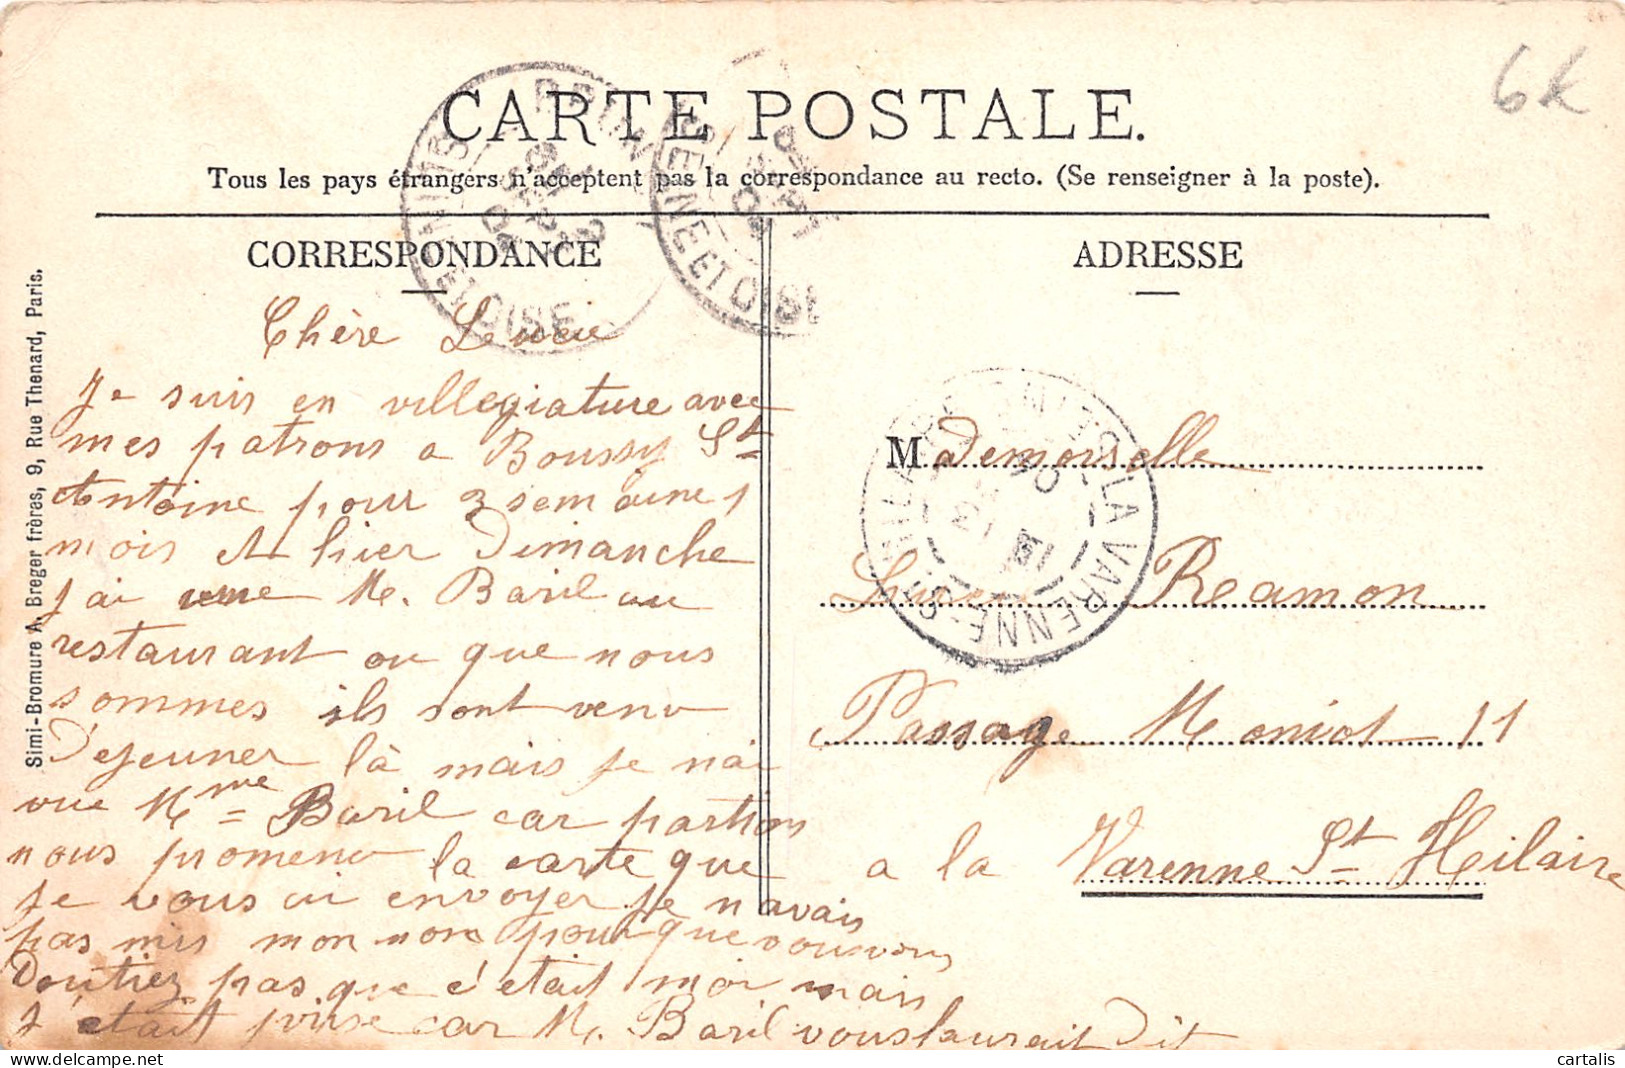 6€
CARTE POSTALE.
Tous les pays étrangers n'acceptent pas la correspondance au recto. (Se renseigner à la poste).
CORRESPONDANCE
ADRESSE
Simi-Bromure A. Breger frères, 9, Rue Thenard, Paris.
SEINE ET OISE
SEINE ET OISE
LA VARENNE-ST-HILAIRE
Chère Lucie
Je suis en villegiature avec
mes patrons a Boussy St
Antoine pour 3 semaine 1
mois et hier Dimanche
j'ai vue M. Baril au
restaurant ou que nous
sommes ils sont venu
Dejeuner là mais je n'ai
vue Mme Baril car partions
nous promener la carte que
je vous ai envoyer je n'avais
pas mis mon nom pour que vous vous
Doutiez pas que c'était moi mais
s'était prise car M. Baril vous laurait Dit
Mademoiselle
Lucie Reamon
Passage Moniot 11
a la Varenne St Hilaire
cartalis